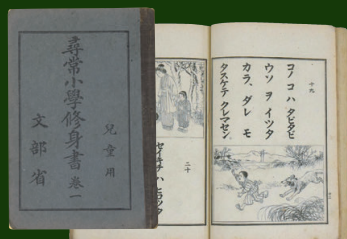 尋常小學修身書 巻一
兒童用
文部省
十九
コノ コハ タビタビ
ウソ ヲ イツタ
カラ、ダレ モ
タスケテ クレマセン。
二十